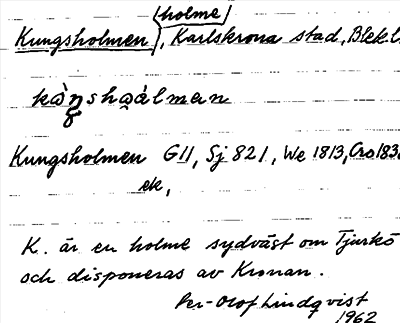 holme
Kungsholmen, Karlskrona stad, Blek.l.
Kungsholmen G11, Sj 821, We 1813, Cro 183
ek,
K. är en holme sydväst om Tjurkö
och disponeras av Kronan.
Per-Olof Lindqvist
1962